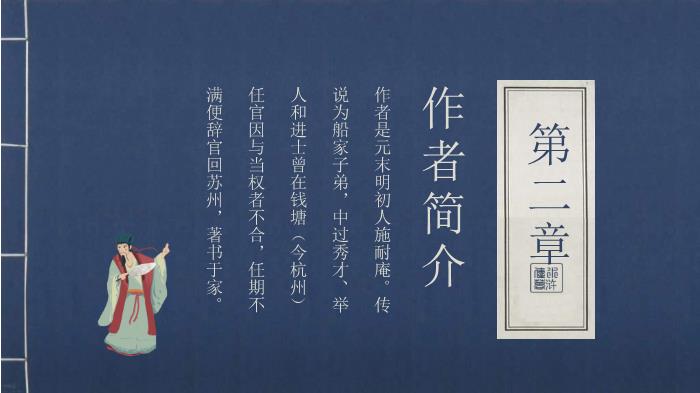 第二章
水浒
作者简介
作者是元末明初人施耐庵。传
说为船家子弟，中过秀才、举
人和进士曾在钱塘（今杭州）
任官因与当权者不合，任期不
满便辞官回苏州，著书于家。